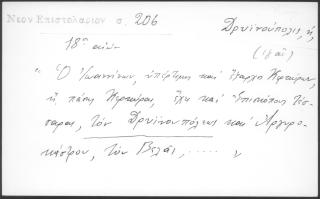 Νεον Επιστολαριον σ. 206
Δρυϊνούπολις, ἡ,
18ος αἰών
(ις' αἰ)
"Ὁ Ἰωαννίνων, ὑπέρτιμος καὶ ἔξαρχος Κερκύρων,
ἢ πάσης Κερκύρας, ἔχει καὶ Ἐπισκόπους τέσ-
σαρας, τὸν Δρυϊνουπόλεως καὶ Ἀργυρο-
κάστρου, τὸν Βελᾶς, ..... "